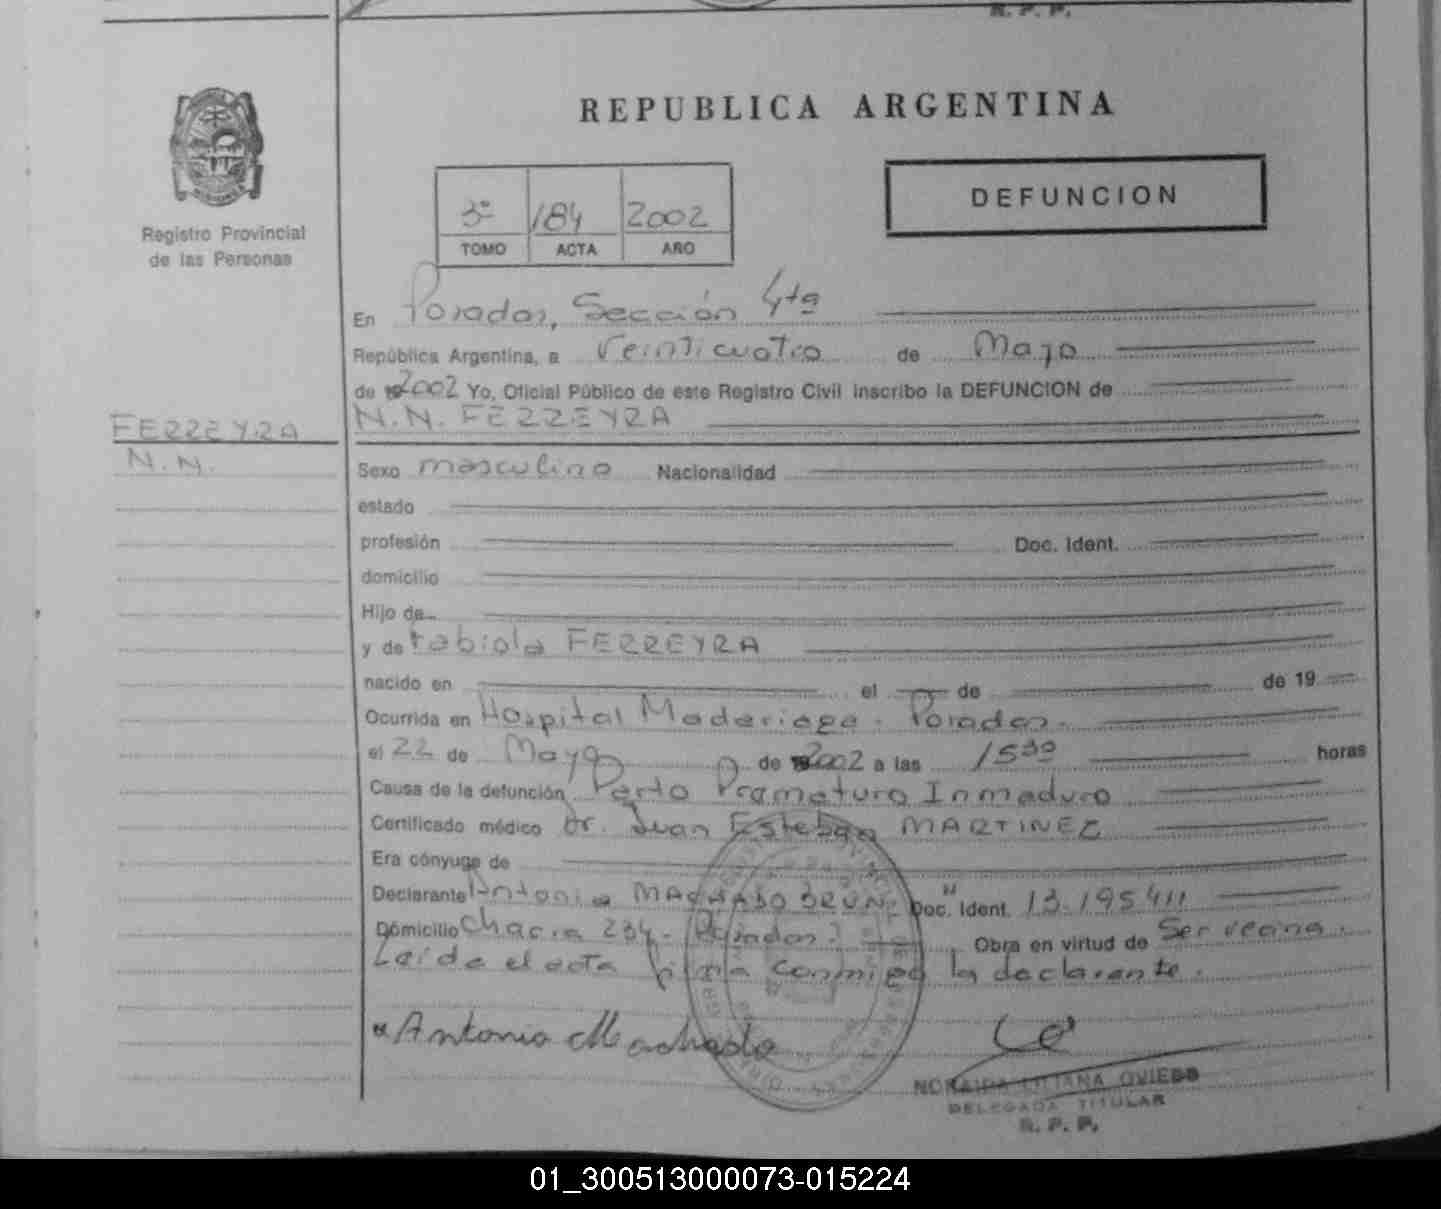 R. P. P.
REPUBLICA ARGENTINA
Registro Provincial
de las Personas
3º 184 2002
TOMO ACTA AÑO
DEFUNCION
En Posadas, Sección 4ta
República Argentina, a Veinticuatro de Mayo
de 2002 Yo, Oficial Público de este Registro Civil inscribo la DEFUNCION de
N.N. FERREYRA
FERREYRA
N.N.
Sexo masculino Nacionalidad
estado
profesión Doc. Ident.
domicilio
Hijo de
y de Fabiola FERREYRA
nacido en el de de 19
Ocurrida en Hospital Madariaga - Posadas.
el 22 de Mayo de 2002 a las 15 30 horas
Causa de la defunción Parto Prematuro Inmaduro
Certificado médico Dr. Juan Esteban MARTINEZ
Era cónyuge de
Declarante MACHADO Doc. Ident. 13.195.411
Domicilio Chacra 234 - Posadas. Obra en virtud de Ser vecina.
Leída el acta firma conmigo la declarante.
Machado
NORAIDA LILIANA OVIEDO
DELEGADA TITULAR
R. P. P.
01_300513000073-015224